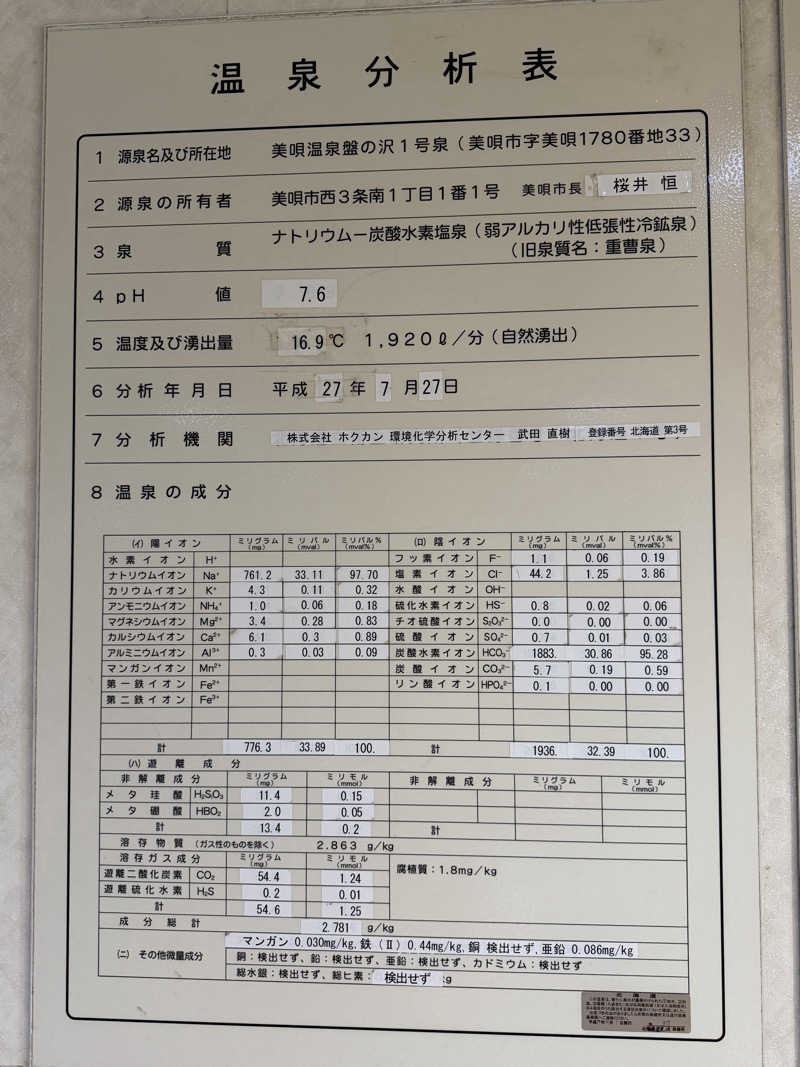 温泉分析表
1 源泉名及び所在地 美唄温泉盤の沢1号泉（美唄市字美唄1780番地33）
2 源泉の所有者 美唄市西3条南1丁目1番1号 美唄市長 桜井 恒
3 泉質 ナトリウムー炭酸水素塩泉（弱アルカリ性低張性冷鉱泉）
（旧泉質名：重曹泉）
4 pH値 7.6
5 温度及び湧出量 16.9℃ 1,920ℓ／分（自然湧出）
6 分析年月日 平成 27 年 7 月 27 日
7 分析機関 株式会社 ホクカン 環境化学分析センター 武田 直樹 登録番号 北海道 第3号
8 温泉の成分
(イ) 陽イオン ミリグラム(mg) ミリバル(mval) ミリバル%(mval%) (ロ) 陰イオン ミリグラム(mg) ミリバル(mval) ミリバル%(mval%)
水素イオン H⁺ フッ素イオン F⁻ 1.1 0.06 0.19
ナトリウムイオン Na⁺ 761.2 33.11 97.70 塩素イオン Cl⁻ 44.2 1.25 3.86
カリウムイオン K⁺ 4.3 0.11 0.32 水酸イオン OH⁻
アンモニウムイオン NH₄⁺ 1.0 0.06 0.18 硫化水素イオン HS⁻ 0.8 0.02 0.06
マグネシウムイオン Mg²⁺ 3.4 0.28 0.83 チオ硫酸イオン S₂O₃²⁻ 0.0 0.00 0.00
カルシウムイオン Ca²⁺ 6.1 0.3 0.89 硫酸イオン SO₄²⁻ 0.7 0.01 0.03
アルミニウムイオン Al³⁺ 0.3 0.03 0.09 炭酸水素イオン HCO₃⁻ 1883. 30.86 95.28
マンガンイオン Mn²⁺ 炭酸イオン CO₃²⁻ 5.7 0.19 0.59
第一鉄イオン Fe²⁺ リン酸イオン HPO₄²⁻ 0.1 0.00 0.00
第二鉄イオン Fe³⁺
計 776.3 33.89 100. 計 1936. 32.39 100.
(ハ) 遊離成分
非解離成分 ミリグラム(mg) ミリモル(mmol) 非解離成分 ミリグラム(mg) ミリモル(mmol)
メタ珪酸 H₂SiO₃ 11.4 0.15
メタ硼酸 HBO₂ 2.0 0.05
計 13.4 0.2 計
溶存物質（ガス性のものを除く） 2.863 g/kg
溶存ガス成分 ミリグラム(mg) ミリモル(mmol) 腐植質：1.8mg/kg
遊離二酸化炭素 CO₂ 54.4 1.24
遊離硫化水素 H₂S 0.2 0.01
計 54.6 1.25
成分総計 2.781 g/kg
(ニ) その他微量成分 マンガン 0.030mg/kg, 鉄(Ⅱ) 0.44mg/kg, 銅 検出せず, 亜鉛 0.086mg/kg
銅：検出せず、鉛：検出せず、亜鉛：検出せず、カドミウム：検出せず
総水銀：検出せず、総ヒ素：検出せず g
北海道